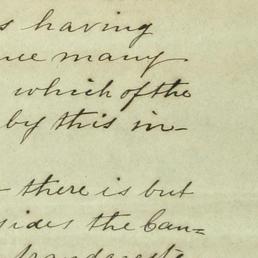 s having
many
which of the
by this in-
there is but
sides the Can=